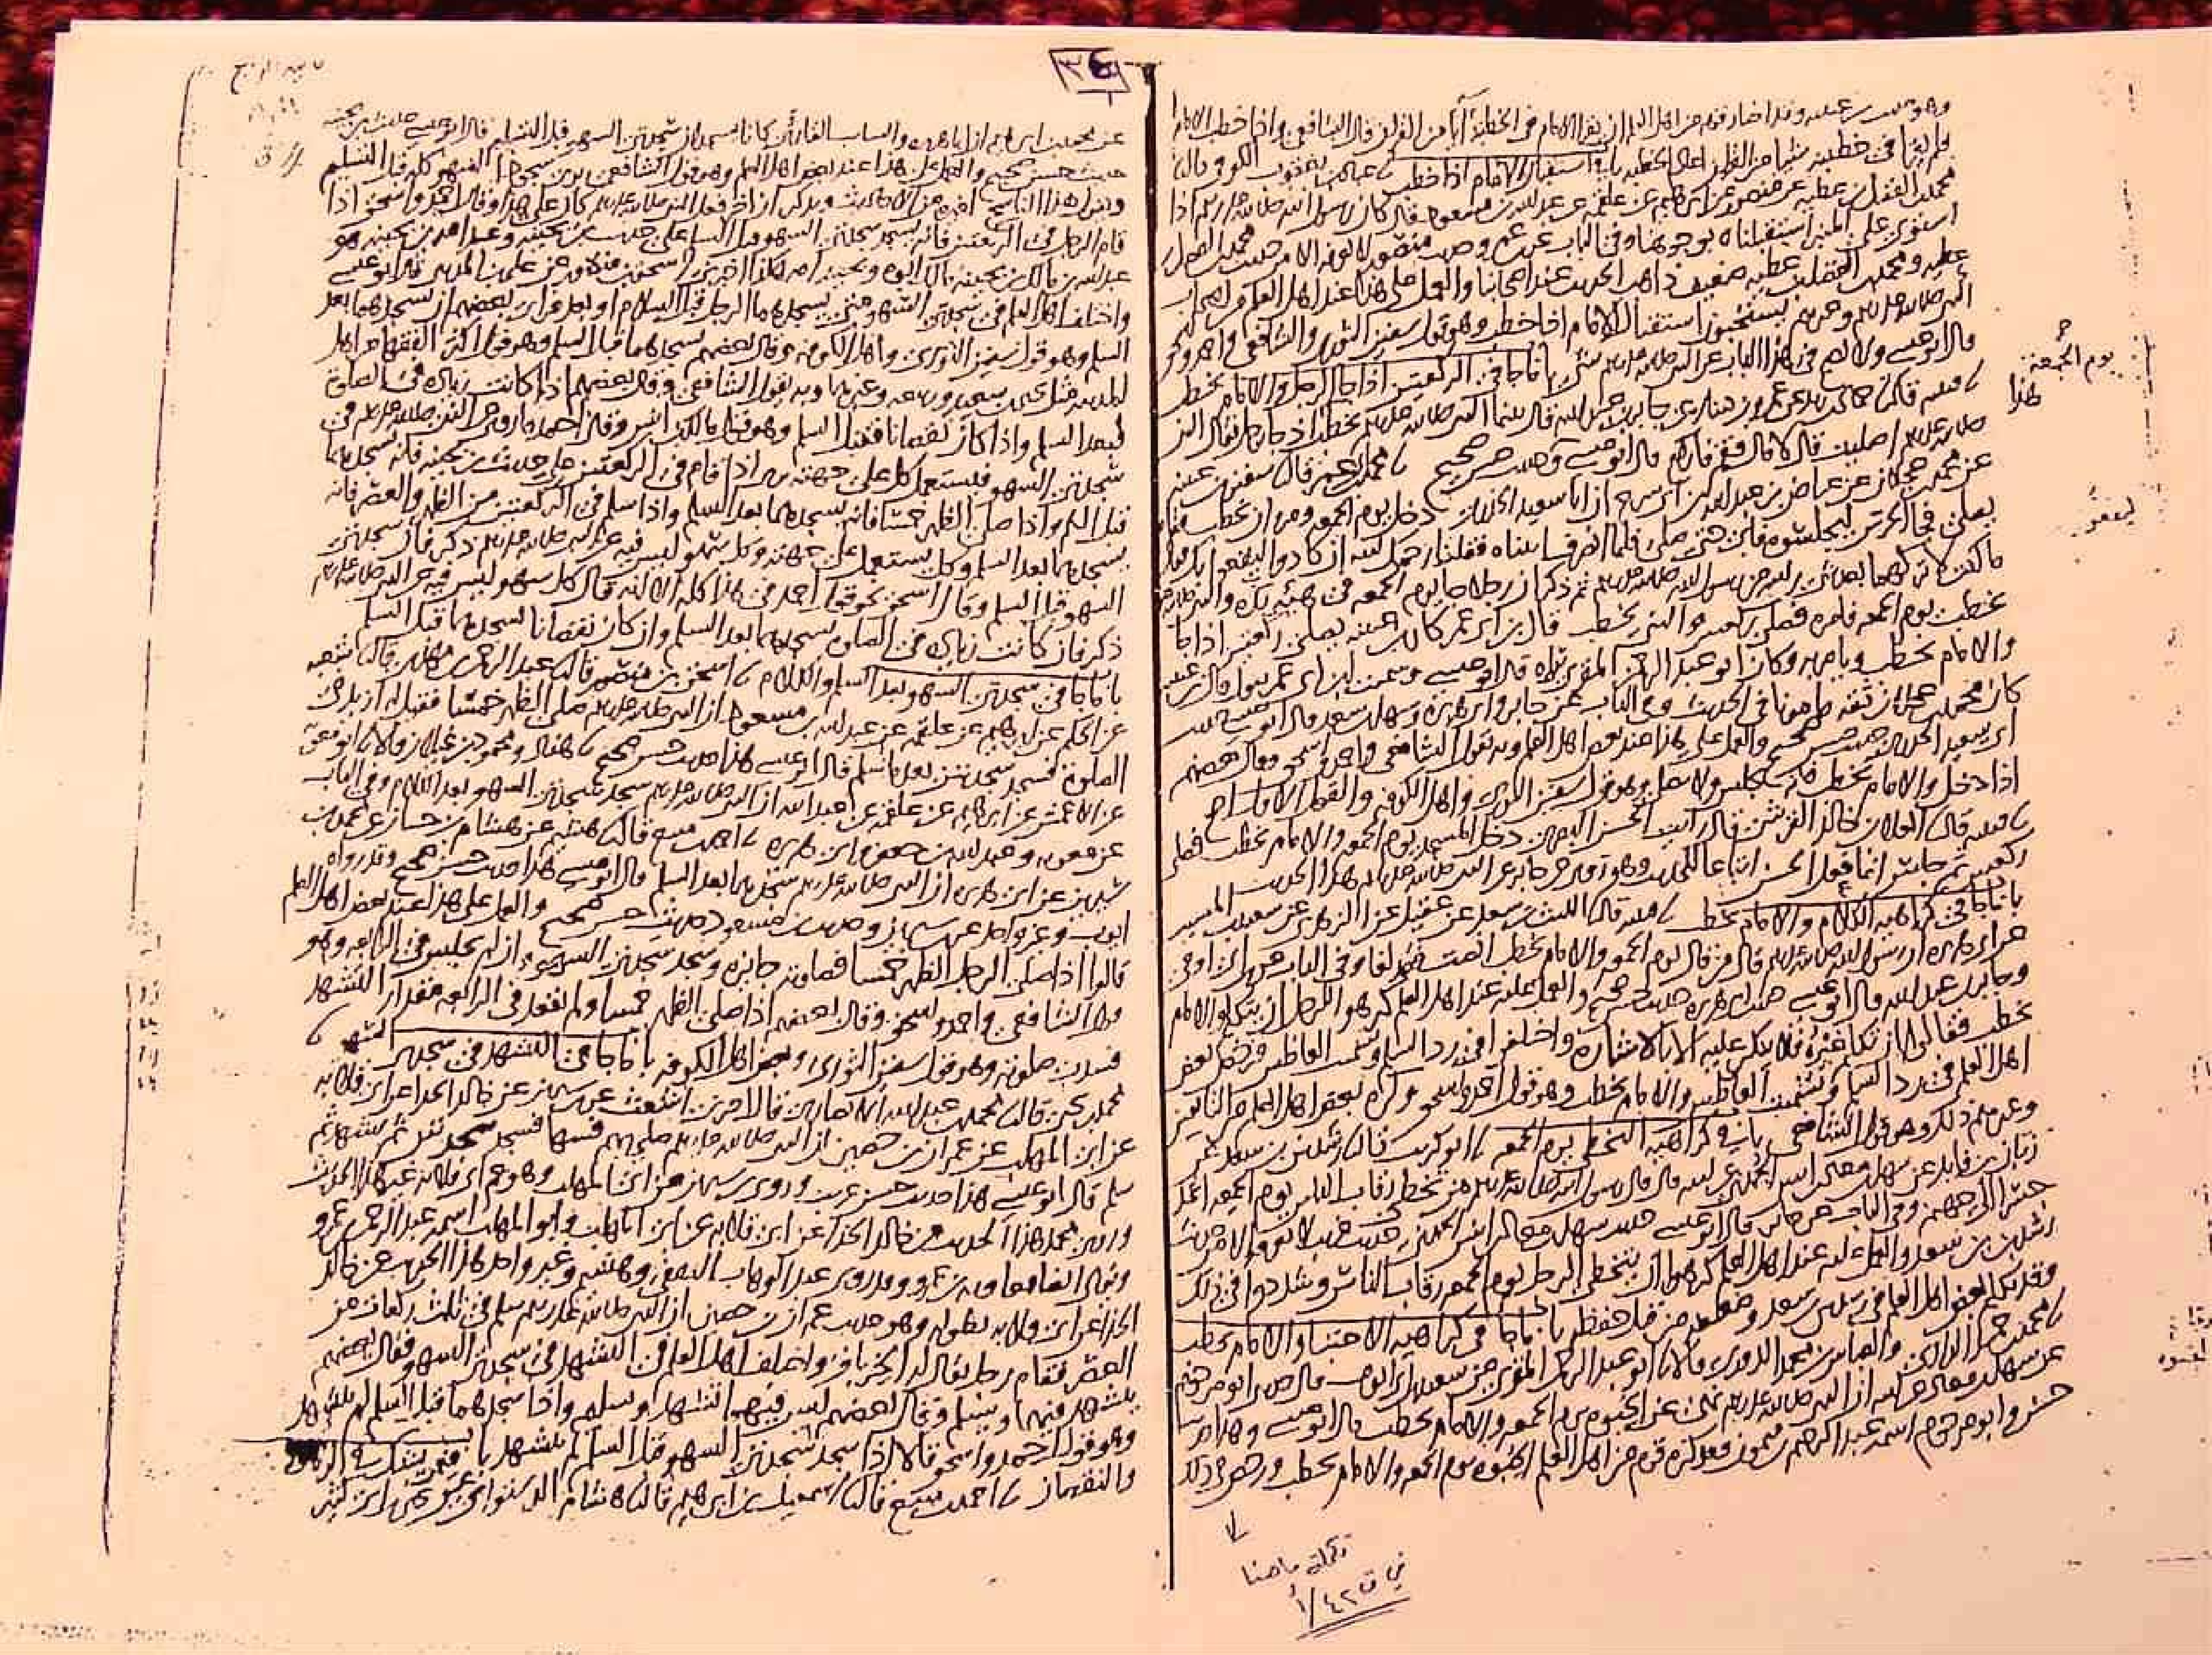 ٣٤
يوم الجمعة
وقد اختار قوم من اهل العلم ان يقرا الامام في الخطبة آيا من القران قال الشافعي واذا خطب الامام
فلم يقرا في خطبته شيا من القران اعاد الخطبة باب في استقبال الامام اذا خطب عباد بن يعقوب الكوفي قال
محمد بن الفضل بن عطيه عن منصور عن ابراهيم عن علقمه عن عبد الله بن مسعود قال كان رسول الله صلى الله عليه وسلم اذا
استوى على المنبر استقبلناه بوجوهنا وفي الباب عن ابن عمر وحديث منصور لا نعرفه الا من حديث محمد بن الفضل
عطيه ومحمد بن الفضل بن عطيه ضعيف ذاهب الحديث عند اصحابنا والعمل على هذا عند اهل العلم من اصحاب
النبي صلى الله عليه وسلم وغيرهم يستحبون استقبال الامام اذا خطب وهو قول سفين الثوري والشافعي واحمد واسحق
قال ابو عيسى ولا يصح في هذا الباب عن النبي صلى الله عليه وسلم شي باب ما جا في الركعتين اذا جا الرجل والامام يخطب
قتيبه قال حماد بن زيد عن عمرو بن دينار عن جابر بن عبد الله قال بينما النبي صلى الله عليه وسلم يخطب اذ جا رجل فقال النبي
صلى الله عليه وسلم اصليت قال لا قال قم فاركع قال ابو عيسى وحديث حسن صحيح محمد بن ابي عمر قال سفين بن عيينه
عن محمد بن عجلان عن عياض بن عبد الله بن ابي سرح ان ابا سعيد الخدري دخل يوم الجمعه ومروان يخطب فقام
يصلي فجا الحرس ليجلسوه فابى حتى صلى فلما انصرف اتيناه فقلنا رحمك الله ان كادوا ليقعوا بك فقال
ما كنت لاتركهما بعد شي رايته من رسول الله صلى الله عليه وسلم ثم ذكر ان رجلا جا يوم الجمعه في هيئة بذه والنبي صلى الله عليه وسلم
يخطب يوم الجمعه فامره فصلى ركعتين والنبي يخطب قال ابن ابي عمر كان ابن عيينه يصلي ركعتين اذا جا
والامام يخطب ويامر به وكان ابو عبد الرحمن المقري يراه قال ابو عيسى وسمعت ابن ابي عمر يقول قال ابن عيينه
كان محمد بن عجلان ثقه مامونا في الحديث وفي الباب عن جابر وابي هريره وسهل بن سعد قال ابو عيسى حديث
ابي سعيد الخدري حديث حسن صحيح والعمل على هذا عند بعض اهل العلم وبه يقول الشافعي واحمد واسحق وقال بعضهم
اذا دخل والامام يخطب فانه يجلس ولا يصلي وهو قول سفين الثوري واهل الكوفه والقول الاول اصح
قتيبه قال العلا بن خالد القرشي قال رايت الحسن البصري دخل المسجد يوم الجمعه والامام يخطب فصلى
ركعتين ثم جلس انما فعل الحسن اتباعا للحديث وهو روى عن جابر عن النبي صلى الله عليه وسلم هذا الحديث
باب ما جا في كراهيه الكلام والامام يخطب قتيبه قال الليث بن سعد عن عقيل عن الزهري عن سعيد بن المسيب
عن ابي هريره ان رسول الله صلى الله عليه وسلم قال من قال يوم الجمعه والامام يخطب انصت فقد لغا وفي الباب عن ابن ابي اوفى
وجابر بن عبد الله قال ابو عيسى حديث ابي هريره حديث حسن صحيح والعمل عليه عند اهل العلم كرهوا للرجل ان يتكلم والامام
يخطب فقالوا ان تكلم غيره فلا ينكر عليه الا بالاشاره واختلفوا في رد السلام وتشميت العاطس فرخص بعض
اهل العلم في رد السلام وتشميت العاطس والامام يخطب وهو قول احمد واسحق وكره بعض اهل العلم من التابعين
وغيرهم ذلك وهو قول الشافعي باب في كراهيه التخطي يوم الجمعه ابو كريب قال رشدين بن سعد عن
زبان بن فايد عن سهل بن معاذ بن انس الجهني عن ابيه قال قال رسول الله صلى الله عليه وسلم من تخطى رقاب الناس يوم الجمعه اتخذ
جسرا الى جهنم وفي الباب عن جابر قال ابو عيسى حديث سهل بن معاذ بن انس الجهني حديث غريب لا نعرفه الا من حديث
رشدين بن سعد والعمل عليه عند اهل العلم كرهوا ان يتخطى الرجل يوم الجمعه رقاب الناس وشددوا في ذلك
وقد تكلم بعض اهل العلم في رشدين بن سعد وضعفه من قبل حفظه باب ما جا في كراهيه الاحتبا والامام يخطب
محمد بن حميد الرازي والعباس بن محمد الدوري قالا ابو عبد الرحمن المقري عن سعيد بن ابي ايوب قال حدثني ابو مرحوم
عن سهل بن معاذ عن ابيه ان النبي صلى الله عليه وسلم نهى عن الحبوه يوم الجمعه والامام يخطب قال ابو عيسى وهذا حديث
حسن وابو مرحوم اسمه عبد الرحيم بن ميمون وقد كره قوم من اهل العلم الحبوه يوم الجمعه والامام يخطب ورخص في ذلك
تكملة ماهنا
في ق ٤٢/أ
عن محمد بن ابراهيم ان ابا هريره والسايب القاري كانا يسجدان سجدتي السهو قبل التسليم قال ابو عيسى حديث ابن بحينه
حديث حسن صحيح والعمل على هذا عند بعض اهل العلم وهو قول الشافعي يرى سجود السهو كله قبل التسليم
ويقول هذا الناسخ لغيره من الاحاديث ويذكر ان اخر فعل النبي صلى الله عليه وسلم كان على هذا وقال احمد واسحق اذا
قام الرجل في الركعتين فانه يسجد سجدتي السهو قبل السلام على حديث ابن بحينه وعبد الله بن بحينه هو
عبد الله بن مالك بن بحينه مالك ابوه وبحينه امه هكذا اخبرني اسحق بن منصور عن علي بن المديني قال ابو عيسى
واختلف اهل العلم في سجدتي السهو متى يسجدهما الرجل قبل السلام او بعده فراى بعضهم ان يسجدهما بعد
السلم وهو قول سفين الثوري واهل الكوفه وقال بعضهم يسجدهما قبل السلم وهو قول اكثر الفقها من اهل
المدينه مثل يحيى بن سعيد وربيعه وغيرهما وبه يقول الشافعي وقال بعضهم اذا كانت زياده في الصلوة
فبعد السلم واذا كان نقصانا فقبل السلم وهو قول مالك بن انس وقال احمد ما روي عن النبي صلى الله عليه وسلم في
سجدتي السهو فيستعمل كل على جهته يرى اذا قام في الركعتين على حديث ابن بحينه فانه يسجدهما
قبل السلم واذا صلى الظهر خمسا فانه يسجدهما بعد السلم واذا سلم في الركعتين من الظهر والعصر فانه
يسجدهما بعد السلم وكل يستعمل على جهته وكل سهو ليس فيه عن النبي صلى الله عليه وسلم ذكر فان سجدتي
السهو قبل السلم وقال اسحق نحو قول احمد في هذا كله الا انه قال كل سهو ليس فيه عن النبي صلى الله عليه وسلم
ذكر فان كانت زياده في الصلوة يسجدهما بعد السلم وان كان نقصانا يسجدهما قبل السلم
باب ما جا في سجدتي السهو بعد السلم والكلام اسحق بن منصور قال عبد الرحمن بن مهدي قال شعبه
عن الحكم عن ابراهيم عن علقمه عن عبد الله بن مسعود ان النبي صلى الله عليه وسلم صلى الظهر خمسا فقيل له ازيد في
الصلوة فسجد سجدتين بعد ما سلم قال ابو عيسى هذا حديث حسن صحيح هناد ومحمود بن غيلان قالا ابو معويه
عن الاعمش عن ابراهيم عن علقمه عن عبد الله ان النبي صلى الله عليه وسلم سجد سجدتي السهو بعد الكلام وفي الباب
عن معويه وعبد الله بن جعفر وابي هريره احمد بن منيع قال هشيم عن هشام بن حسان عن محمد بن
سيرين عن ابي هريره ان النبي صلى الله عليه وسلم سجدهما بعد السلم قال ابو عيسى هذا حديث حسن صحيح وقد رواه
ايوب وغير واحد عن ابن سيرين وحديث ابن مسعود حديث حسن صحيح والعمل على هذا عند بعض اهل العلم
قالوا اذا صلى الرجل الظهر خمسا فصلوته جايزه وسجد سجدتي السهو وان لم يجلس في الرابعه وهو
قول الشافعي واحمد واسحق وقال بعضهم اذا صلى الظهر خمسا ولم يقعد في الرابعه مقدار التشهد
فسدت صلوته وهو قول سفين الثوري وبعض اهل الكوفه باب ما جا في التشهد في سجدتي السهو
محمد بن يحيى قال محمد بن عبد الله الانصاري قال اخبرني اشعث عن ابن سيرين عن خالد الحذا عن ابي قلابه
عن ابي المهلب عن عمران بن حصين ان النبي صلى الله عليه وسلم صلى بهم فسها فسجد سجدتين ثم تشهد ثم
سلم قال ابو عيسى هذا حديث حسن غريب وروى ابن سيرين عن ابي المهلب وهو عم ابي قلابه غير هذا الحديث
وروى محمد هذا الحديث عن خالد الحذا عن ابي قلابه عن ابي المهلب وابو المهلب اسمه عبد الرحمن بن عمرو
ويقال ايضا معاويه بن عمرو وقد روى عبد الوهاب الثقفي وهشيم وغير واحد هذا الحديث عن خالد
الحذا عن ابي قلابه بطوله وهو حديث عمران بن حصين ان النبي صلى الله عليه وسلم سلم في ثلث ركعات من
العصر فقام رجل يقال له الخرباق واختلف اهل العلم في التشهد في سجدتي السهو فقال بعضهم
يتشهد فيهما ويسلم وقال بعضهم ليس فيهما تشهد وتسليم واذا سجدهما قبل السلم لم يتشهد
وهو قول احمد واسحق قالا اذا سجد سجدتي السهو قبل السلم لم يتشهد باب فيمن يشك في الزيادة
والنقصان احمد بن منيع قال اسمعيل بن ابراهيم قال هشام الدستوايي عن يحيى بن ابي كثير